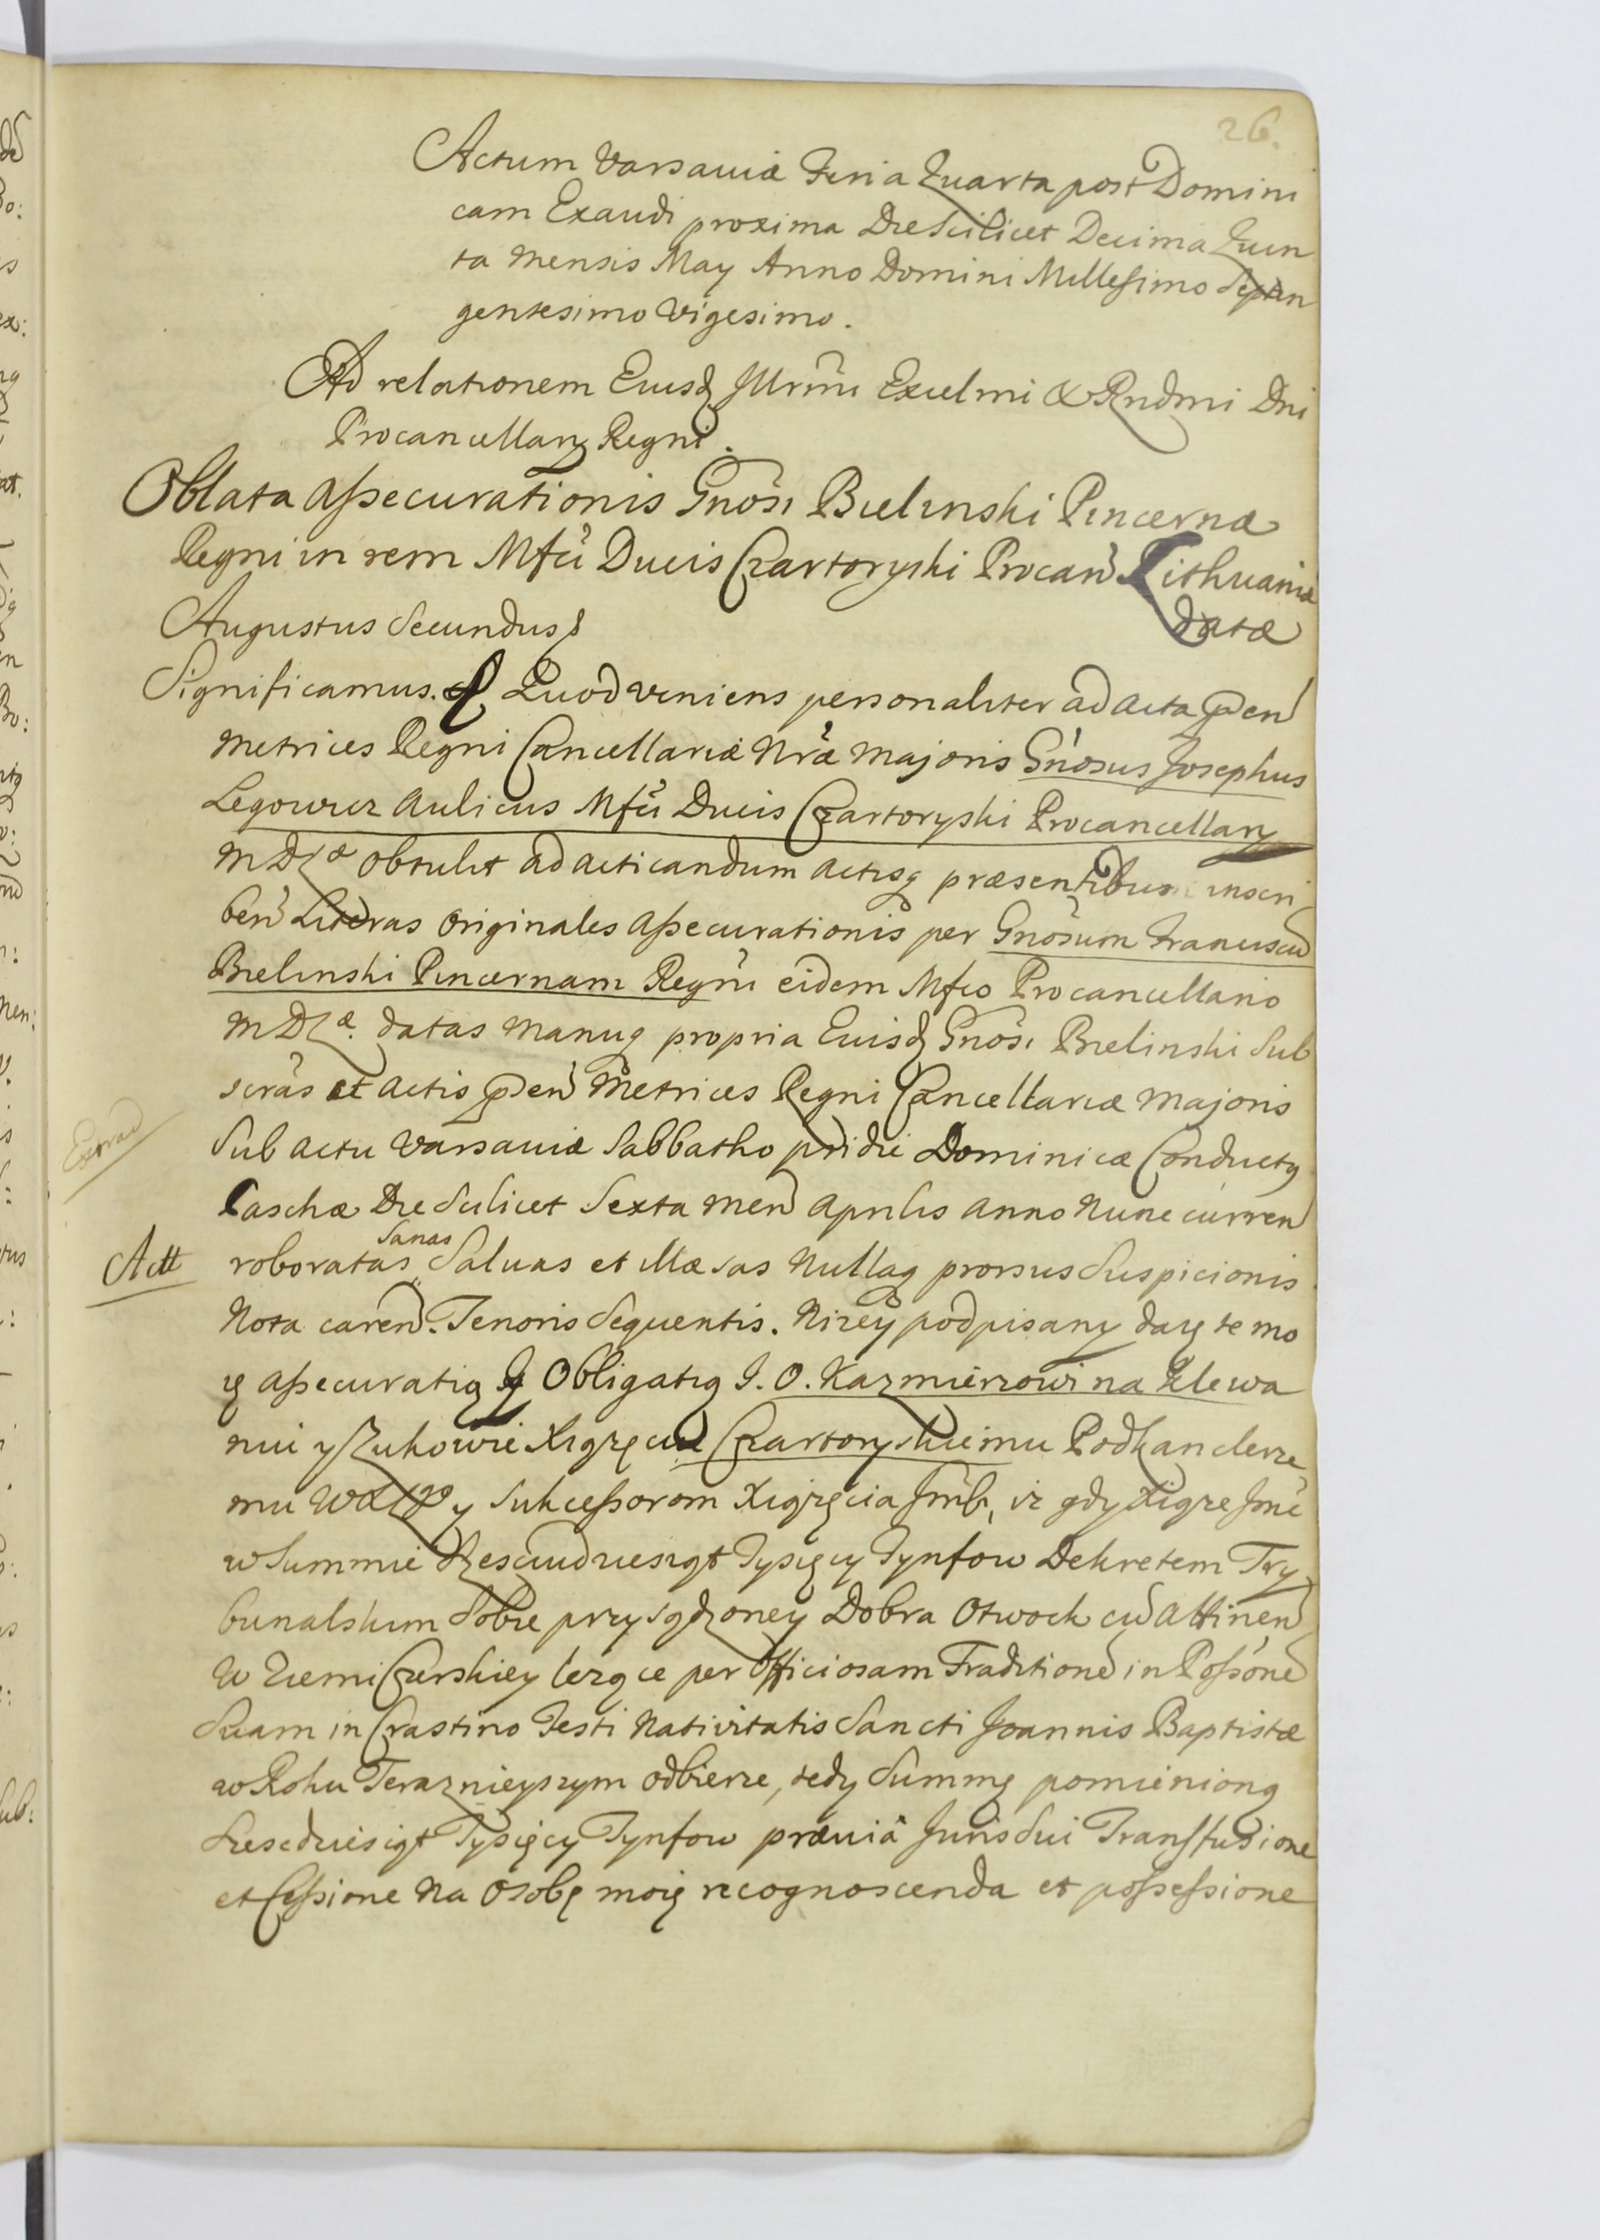 26.
Actum Varsaviæ Feria Quarta post Domini
cam Exaudi proxima Die Scilicet Decima Quin
ta Mensis May Anno Domini Millesimo Septin
gentesimo Vigesimo.
Ad relationem Eiusdq Illrmi Excelmi & Rndmi Dni
Procancellarij Regni.
Oblata Assecurationis Gnosi Bielinski Pincernæ
Regni in rem Mfci Ducis Czartoryski Procan Lithuaniæ
datæ
Augustus Secundus
Significamus. Quod veniens personaliter ad acta pñen
Metrices Regni Cancellariæ Nræ Majoris Gnosus Josephus
Legowicz Aulicus Mfci Ducis Czartoryski Procancellarij
M D L æ obtulit ad acticandum actisq præsentibus inscri
ben Literas Originales Assecurationis per Gnosum Franciscũ
Bielinski Pincernam Regni eidem Mfco Procancellario
M D L æ datas Manuq propria Eiusdq Gnosi Bielinski Sub
scras et actis pñen Metrices Regni Cancellariæ Majoris
Extrad
Sub actu Varsaviæ Sabbatho pridie Dominicæ Conductq
Paschæ Die Scilicet Sexta Men Aprilis Anno Nunc curren
Actt
Sanas
roboratas Salvas et Illæsas Nullaq prorsus Suspicionis
Nota caren. Tenoris Sequentis. Niżey podpisany daię te mo
ię assecuratią y Obligatią J. O. Kazmierzowi na Klewa
niu y Zukowie Xiążęciu Czartoryskiemu Podkanclerze
mu W X Lgo y Sukcessorom Xiążęcia Jmści, iż gdy Xiąże Jmć
w Summie Szesciudziesiąt Tysięcy Tynfow Dekretem Try
bunalskim Sobie przysądzoney Dobra Otwock cũ Attinen
w Ziemi Czerskiey leżące per Officiosam Traditionẽ in Possonẽ
Suam in Crastino Festi Nativitatis Sancti Joannis Baptistæ
w Roku Teraznieyszym odbierze, tedy Summę pomienioną
Szescdziesiąt Tysięcy Tynfow præviâ Juris Sui Transfusione
et Cessione Na Osobę moię recognoscenda et possessione